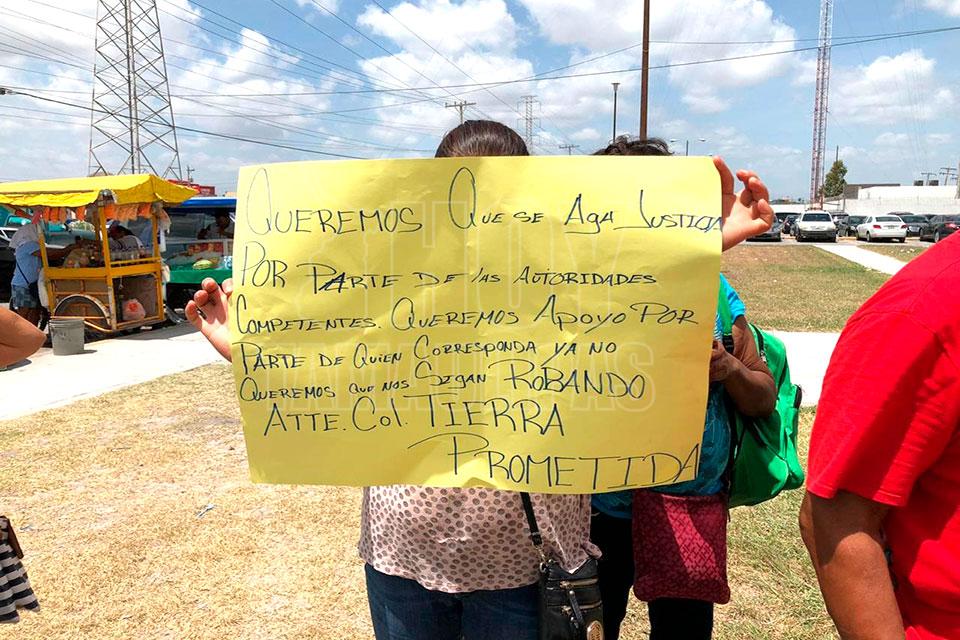 Queremos Que se Aga Justicia
Por Parte de las Autoridades
Competentes. Queremos Apoyo Por
Parte de Quien Corresponda ya no
Queremos que nos Sigan Robando
Atte. Col. Tierra
Prometida
HOY
TAMAULIPAS